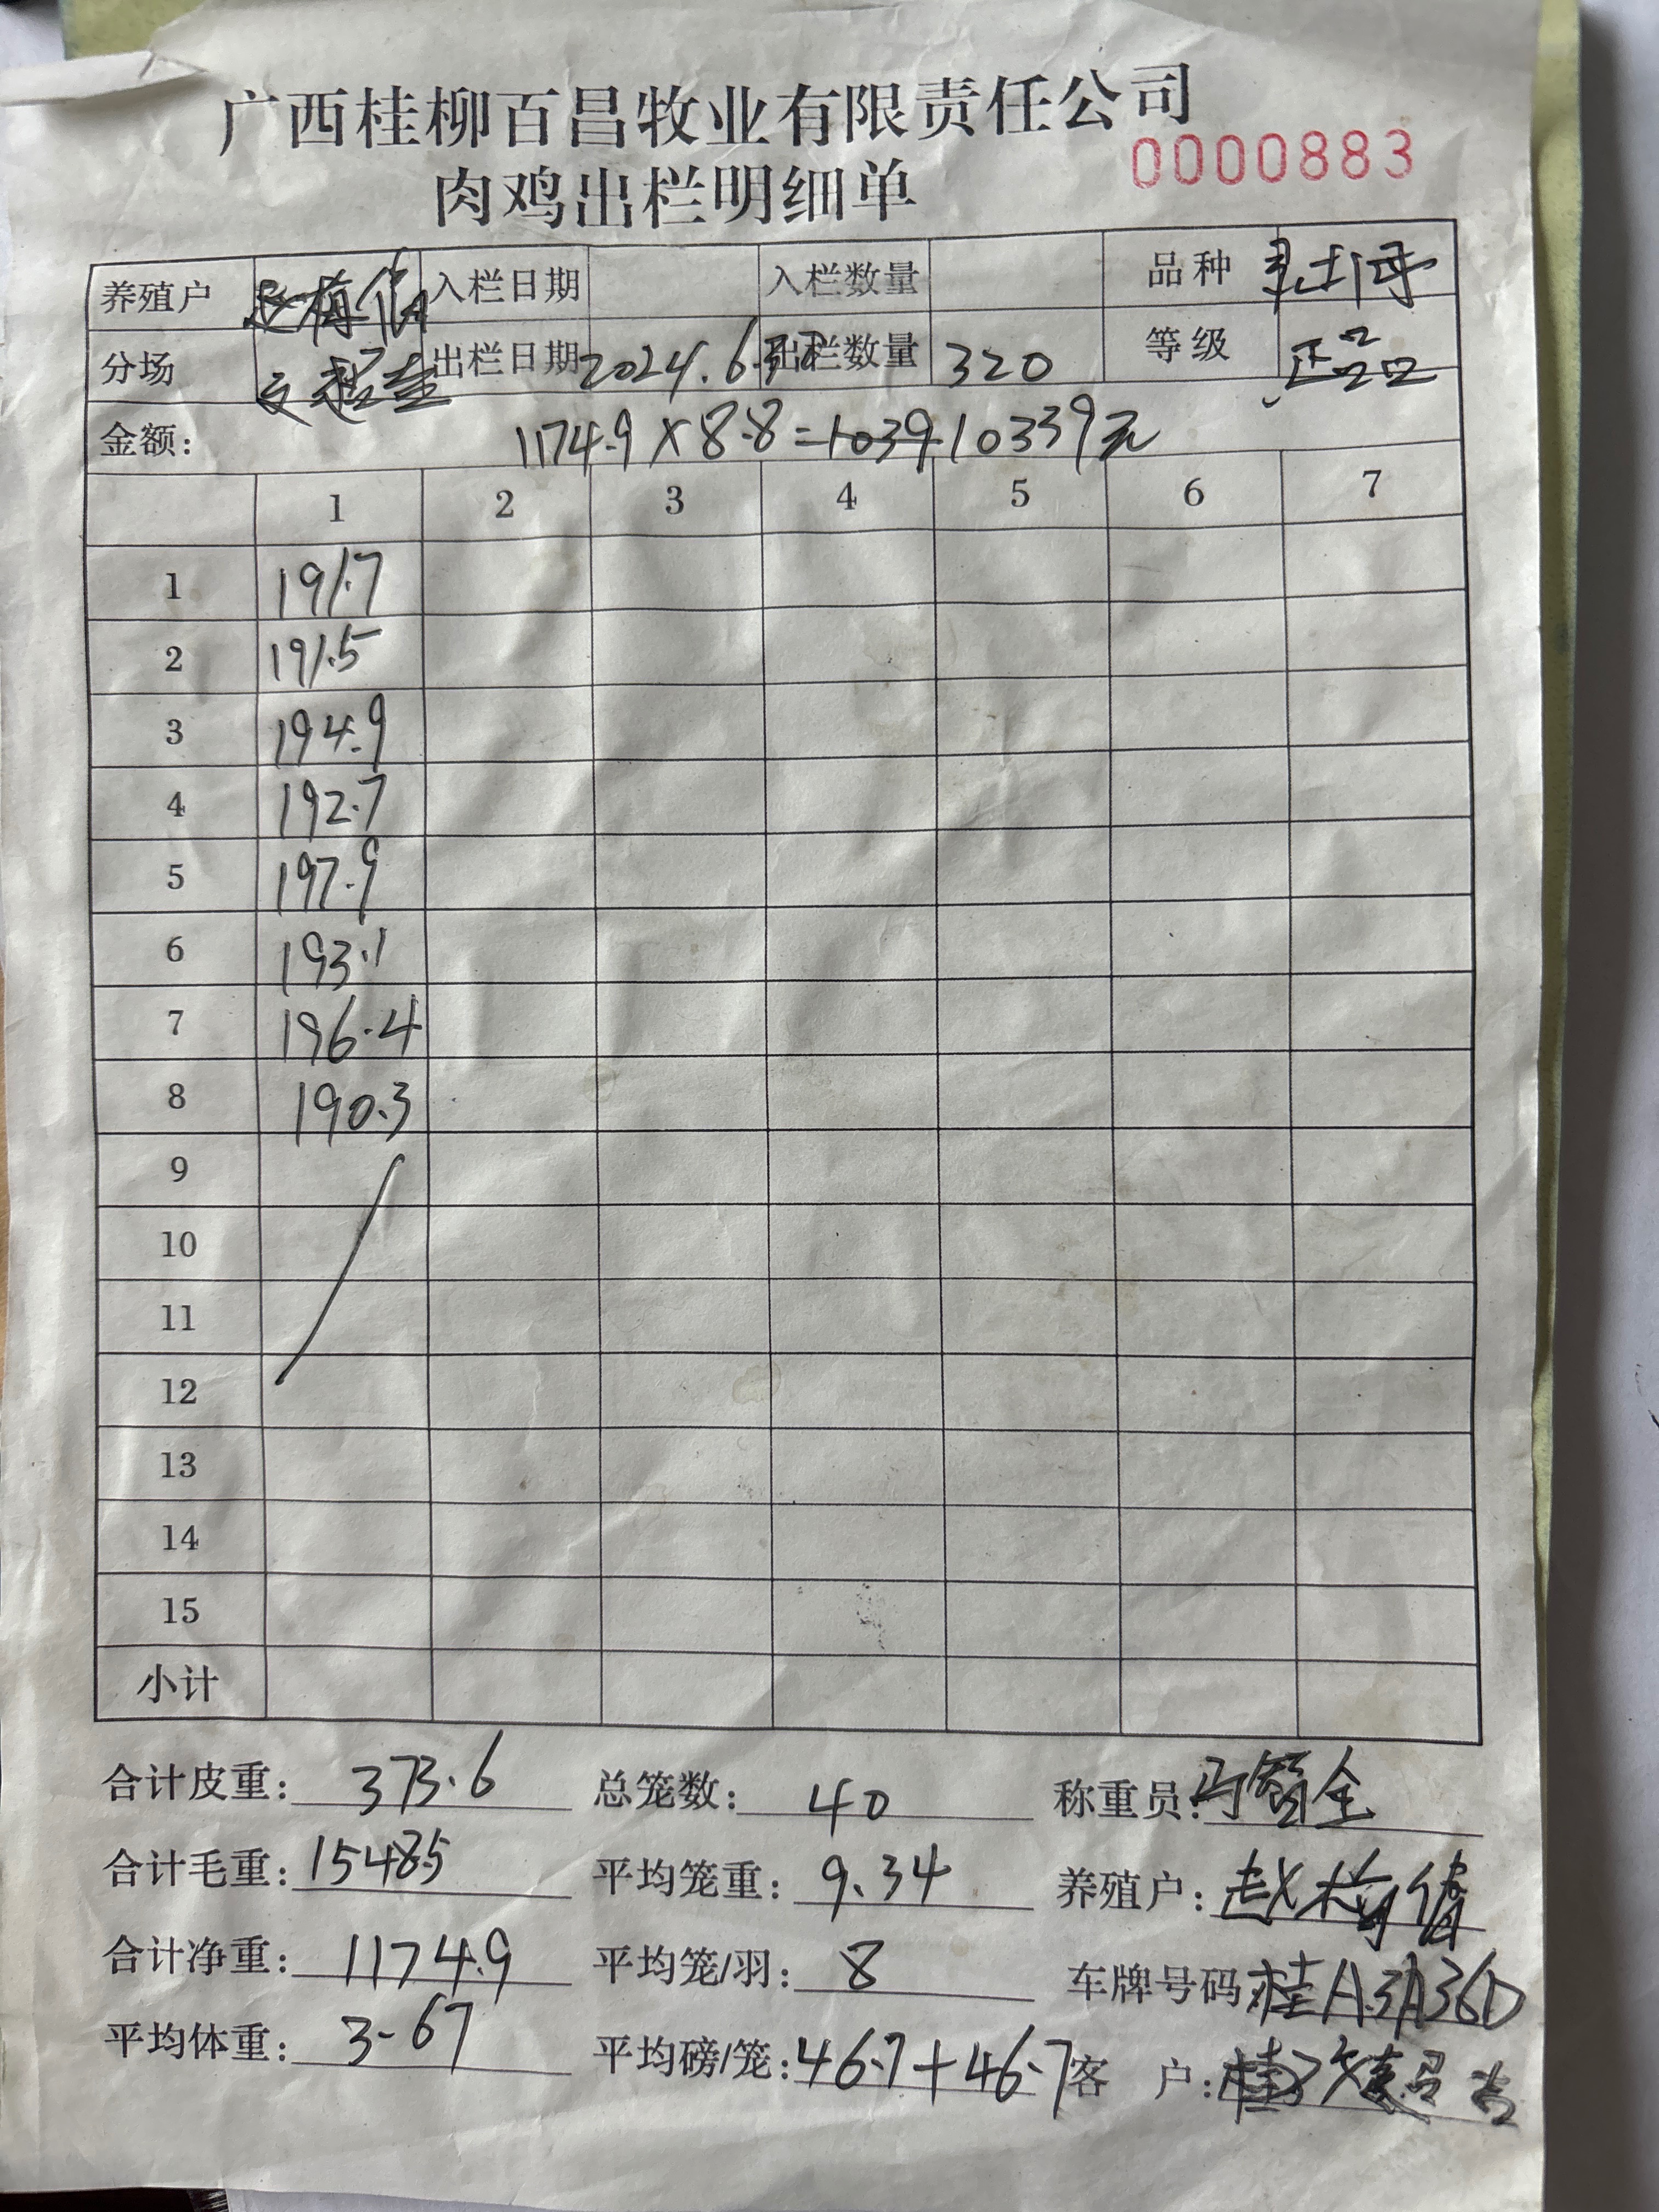 广西桂柳百昌牧业有限责任公司
0000883
肉鸡出栏明细单
养殖户 入栏日期 入栏数量 品种
分场 出栏日期 2024.6. 出栏数量 320 等级 正品
金额: 1174.9×8.8=1039 10339元
1 2 3 4 5 6 7
1 191.7
2 191.5
3 194.9
4 192.7
5 197.9
6 193.1
7 196.4
8 190.3
9
10
11
12
13
14
15
小计
合计皮重: 373.6 总笼数: 40 称重员:
合计毛重: 1548.5 平均笼重: 9.34 养殖户: 赵梅
合计净重: 1174.9 平均笼/羽: 8 车牌号码: 桂A3A36D
平均体重: 3-67 平均磅/笼: 46.7+46.7 客 户: